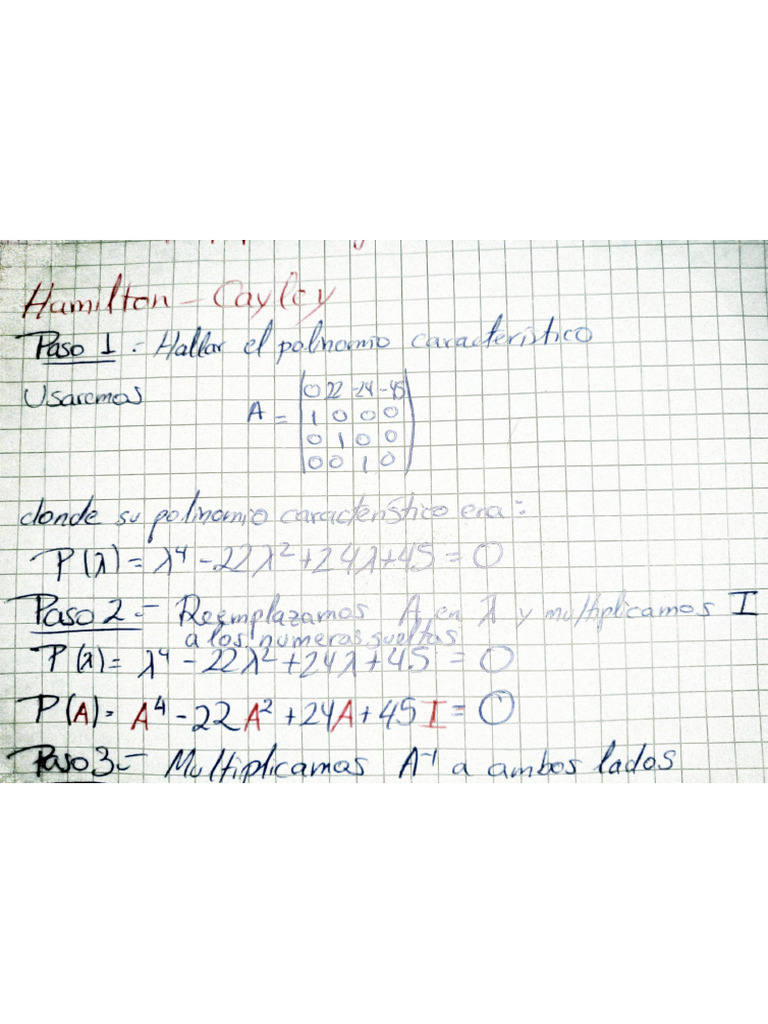 Hamilton - Cayley
Paso 1.- Hallar el polinomio característico
Usaremos A =
0 22 -24 -45
1 0 0 0
0 1 0 0
0 0 1 0
donde su polinomio característico era:
P(λ) = λ⁴ - 22λ² + 24λ + 45 = 0
Paso 2.- Reemplazamos A en λ y multiplicamos I
a los numeros sueltos
P(λ) = λ⁴ - 22λ² + 24λ + 45 = 0
P(A) = A⁴ - 22A² + 24A + 45I = 0
Paso 3.- Multiplicamos A⁻¹ a ambos lados